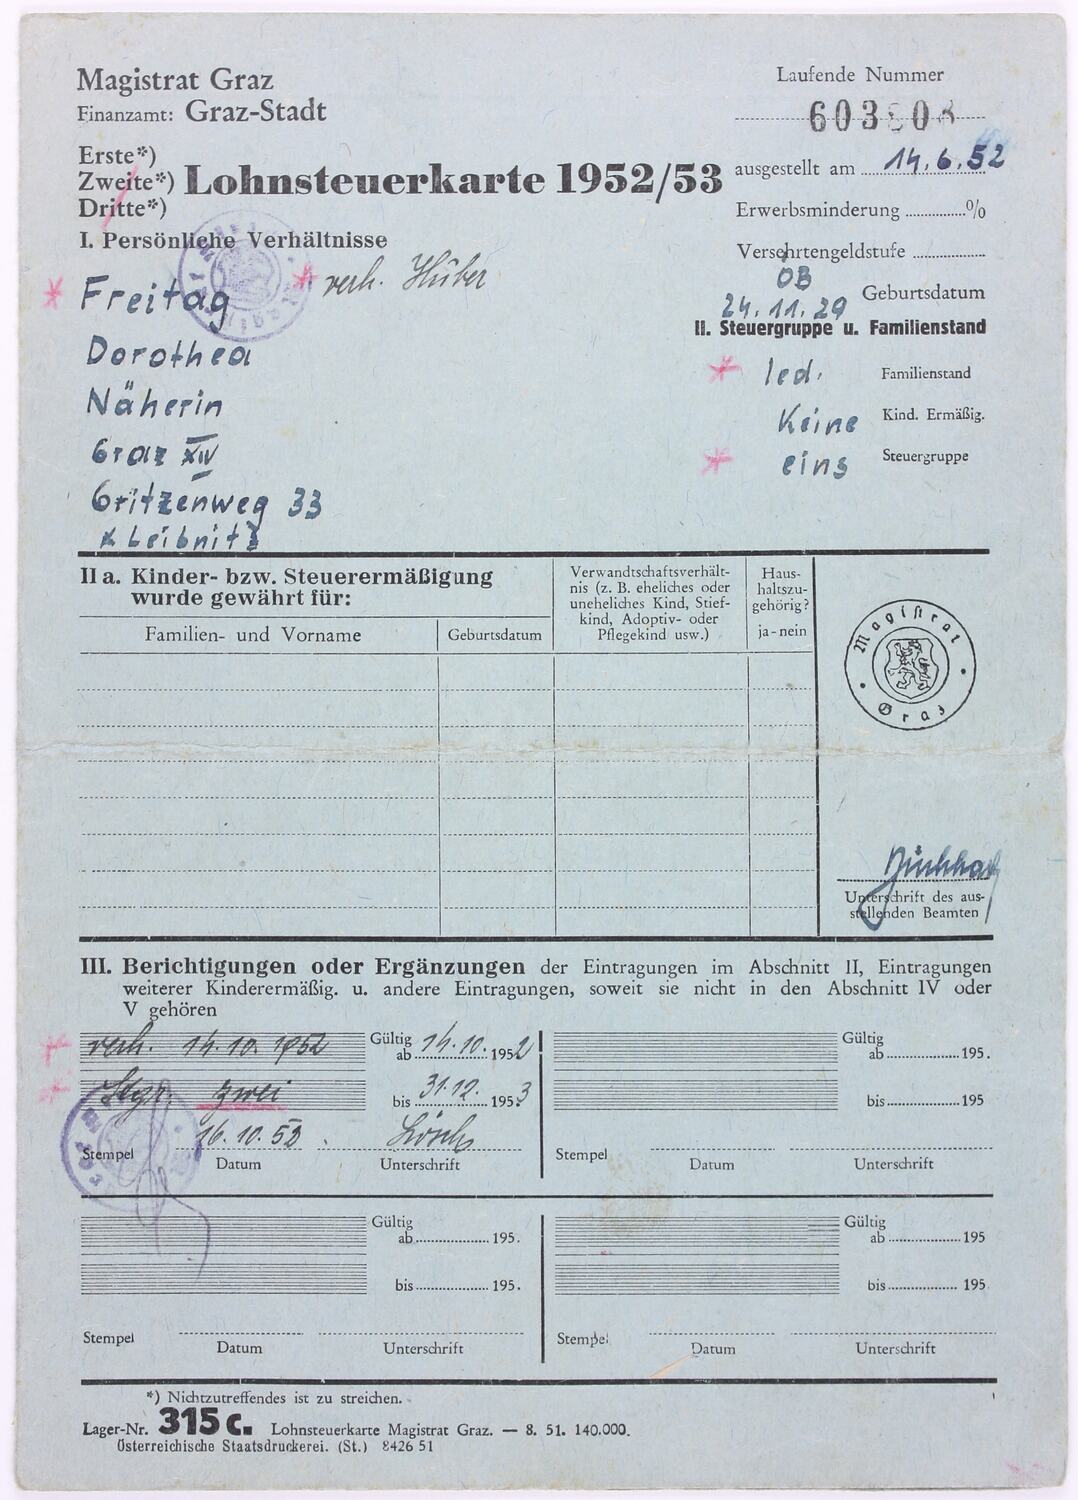 Magistrat Graz
Finanzamt: Graz-Stadt
Laufende Nummer
603808
Erste*)
Zweite*)
Dritte*)
Lohnsteuerkarte 1952/53
ausgestellt am 14.6.52
Erwerbsminderung ..........%
Versehrtengeldstufe ..........
I. Persönliche Verhältnisse
Freitag verh. Huber
Dorothea
Näherin
Graz XIV
Gritzenweg 33
* Leibnitz
ÖB
24.11.29 Geburtsdatum
II. Steuergruppe u. Familienstand
led. Familienstand
Keine Kind. Ermäßig.
eins Steuergruppe
II a. Kinder- bzw. Steuerermäßigung
wurde gewährt für:
Familien- und Vorname
Geburtsdatum
Verwandtschaftsverhält-
nis (z. B. eheliches oder
uneheliches Kind, Stief-
kind, Adoptiv- oder
Pflegekind usw.)
Haus-
haltszu-
gehörig?
ja-nein
Magistrat
Graz
Unterschrift des aus-
stellenden Beamten
III. Berichtigungen oder Ergänzungen der Eintragungen im Abschnitt II, Eintragungen
weiterer Kinderermäßig. u. andere Eintragungen, soweit sie nicht in den Abschnitt IV oder
V gehören
verh. 14.10.1952
Gültig
ab 14.10. 1952
Stgr. zwei
bis 31.12. 1953
16.10.52 Lösch
Stempel Datum Unterschrift
Gültig
ab .......... 195.
bis .......... 195
Stempel Datum Unterschrift
Gültig
ab .......... 195.
bis .......... 195.
Stempel Datum Unterschrift
Gültig
ab .......... 195
bis .......... 195.
Stempel Datum Unterschrift
*) Nichtzutreffendes ist zu streichen.
Lager-Nr. 315 c. Lohnsteuerkarte Magistrat Graz. — 8. 51. 140.000.
Österreichische Staatsdruckerei. (St.) 8426 51